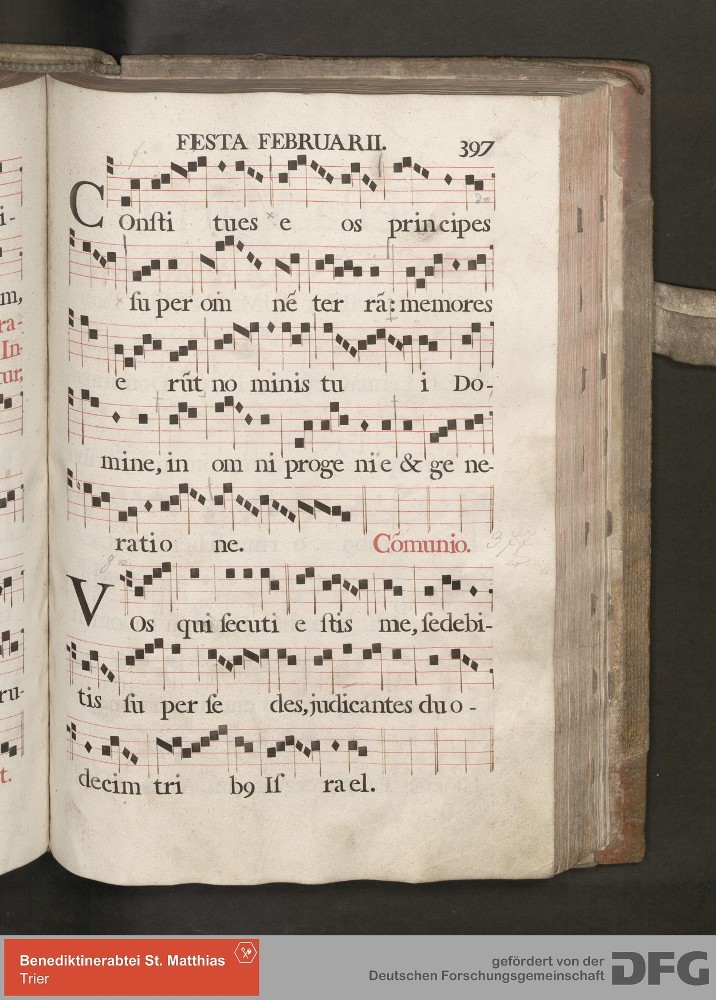 FESTA FEBRUARII. 397
COnſti tues e os principes
i-
ſu per om̄ nē ter rā: memores
m,
ra-
In-
e rūt no minis tu i Do-
tur,
mine, in om ni proge nie & ge ne-
ratio ne. Cōmunio.
VOs qui ſecuti e ſtis me, ſedebi-
tis ſu per ſe des, judicantes du o-
ru-
decim tri b9 Iſ ra el.
t.
Benediktinerabtei St. Matthias
Trier
gefördert von der
Deutschen Forschungsgemeinschaft DFG